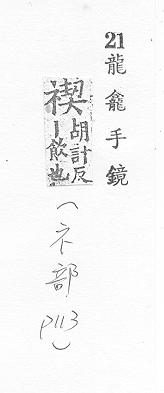 21龍龕手鏡
禊胡計反丨飲也
(ネ部 P113)